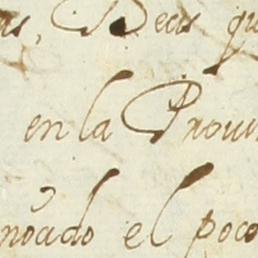 as, Decis qu
en la Prouin
noado el poco